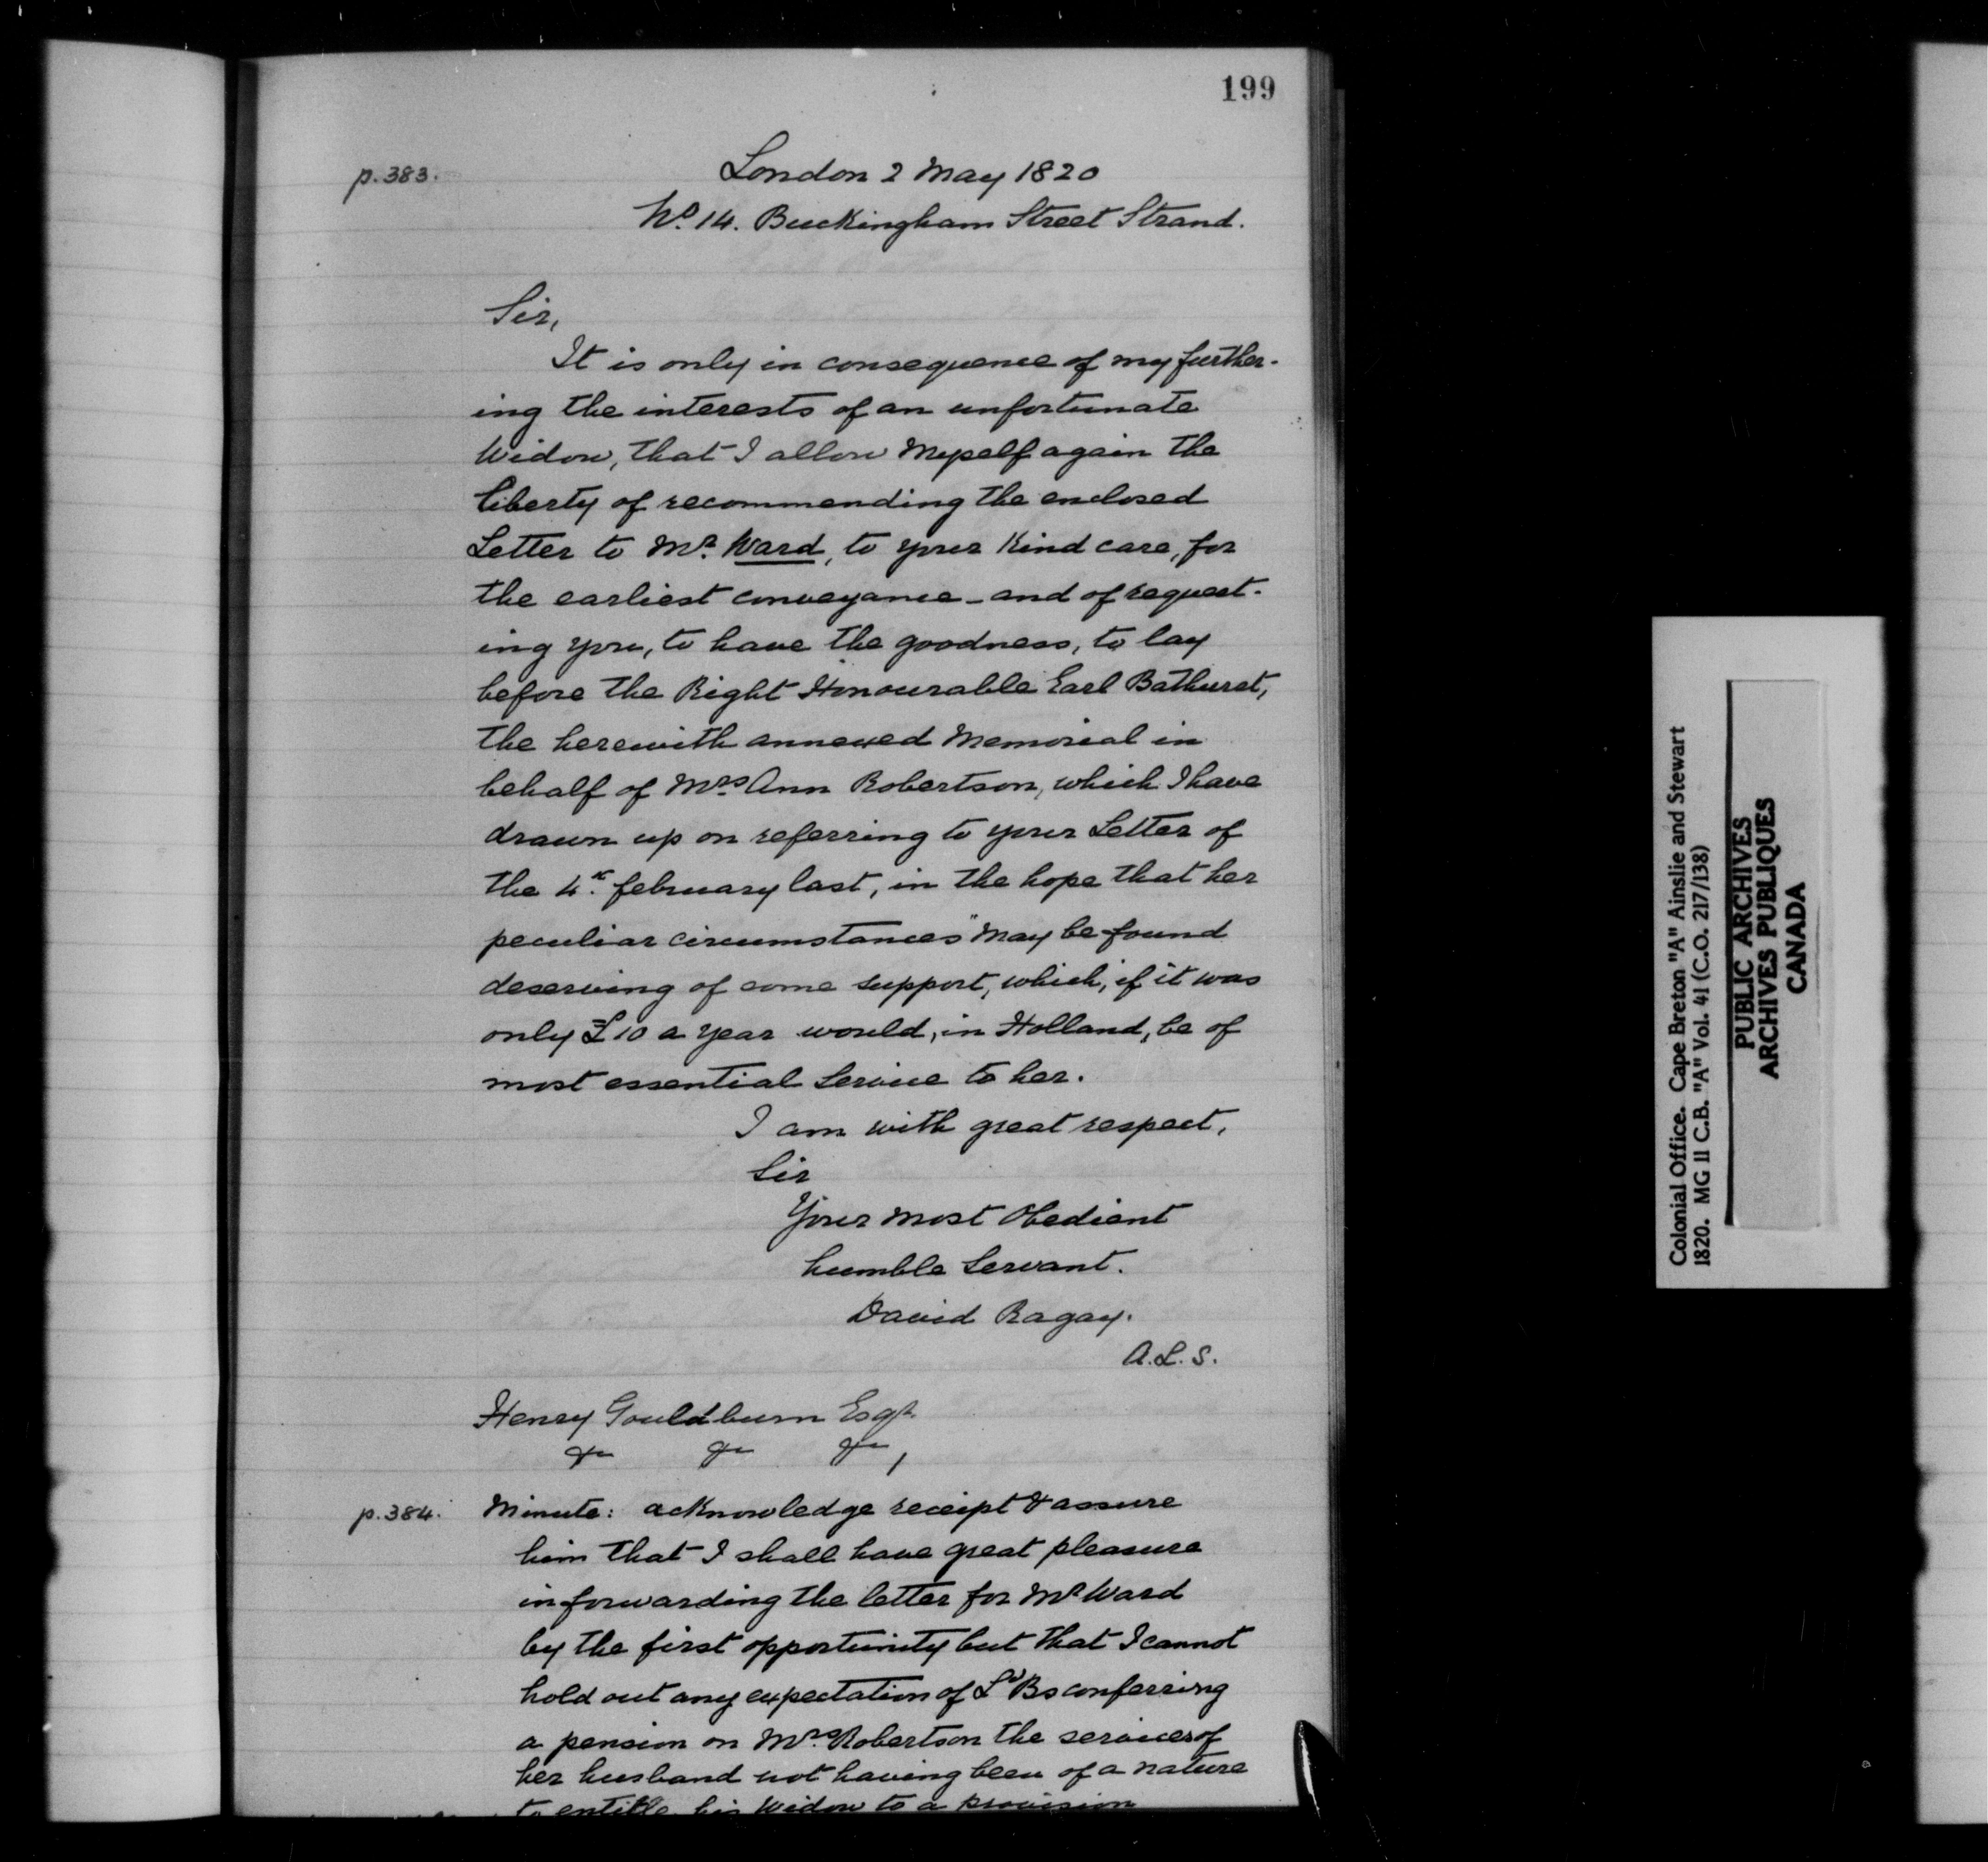 199
p.383.
London 2 May 1820
No. 14. Buckingham Street Strand.
Sir,
It is only in consequence of my further-
ing the interests of an unfortunate
Widow, that I allow Myself again the
liberty of recommending the enclosed
Letter to Mr. Ward, to your Kind care, for
the earliest conveyance - and of request-
ing you, to have the goodness, to lay
before the Right Honourable Earl Bathurst,
the herewith annexed Memorial in
behalf of Mrs. Ann Robertson, which I have
drawn up on referring to your Letter of
the 4th. february last, in the hope that her
peculiar circumstances" may be found
deserving of some support, which, if it was
only £10 a year would, in Holland, be of
most essential Service to her.
I am with great respect,
Sir
Your most Obedient
humble Servant.
David Ragay.
A.L.S.
Henry Gouldburn Esqr.
&c &c &c,
p.384.
Minute: acknowledge receipt & assure
him that I shall have great pleasure
in forwarding the letter for Mr Ward
by the first opportunity but that I cannot
hold out any expectation of Ld Bs conferring
a pension on Mrs. Robertson the services of
her husband not having been of a nature
to entitle his Widow to a provision
Colonial Office. Cape Breton "A" Ainslie and Stewart
1820. MG 11 C.B. "A" Vol. 41 (C.O. 217/138)
PUBLIC ARCHIVES
ARCHIVES PUBLIQUES
CANADA